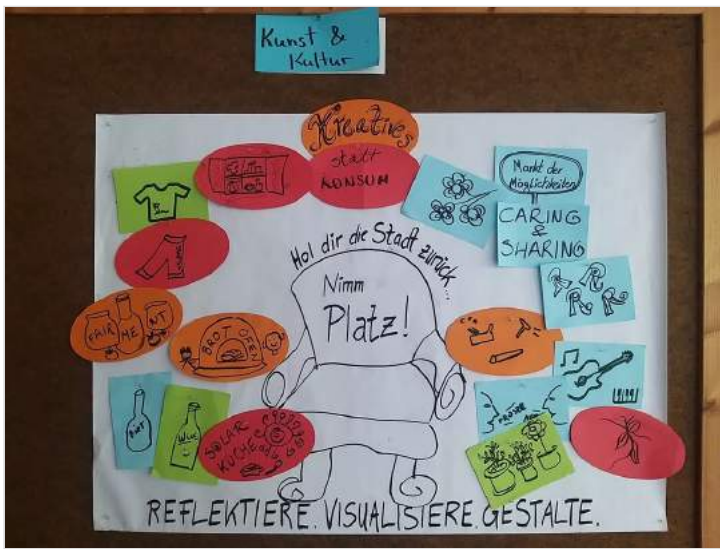 Kunst &
Kultur
Kreatives
statt
KONSUM
Markt der
Möglichkeiten
CARING
&
SHARING
Hol dir die Stadt zurück...
Nimm
Platz!
FAIR ME NT
BROT OFEN
SOLAR
KÜCHE
R R
R R
REFLEKTIERE. VISUALISIERE. GESTALTE.